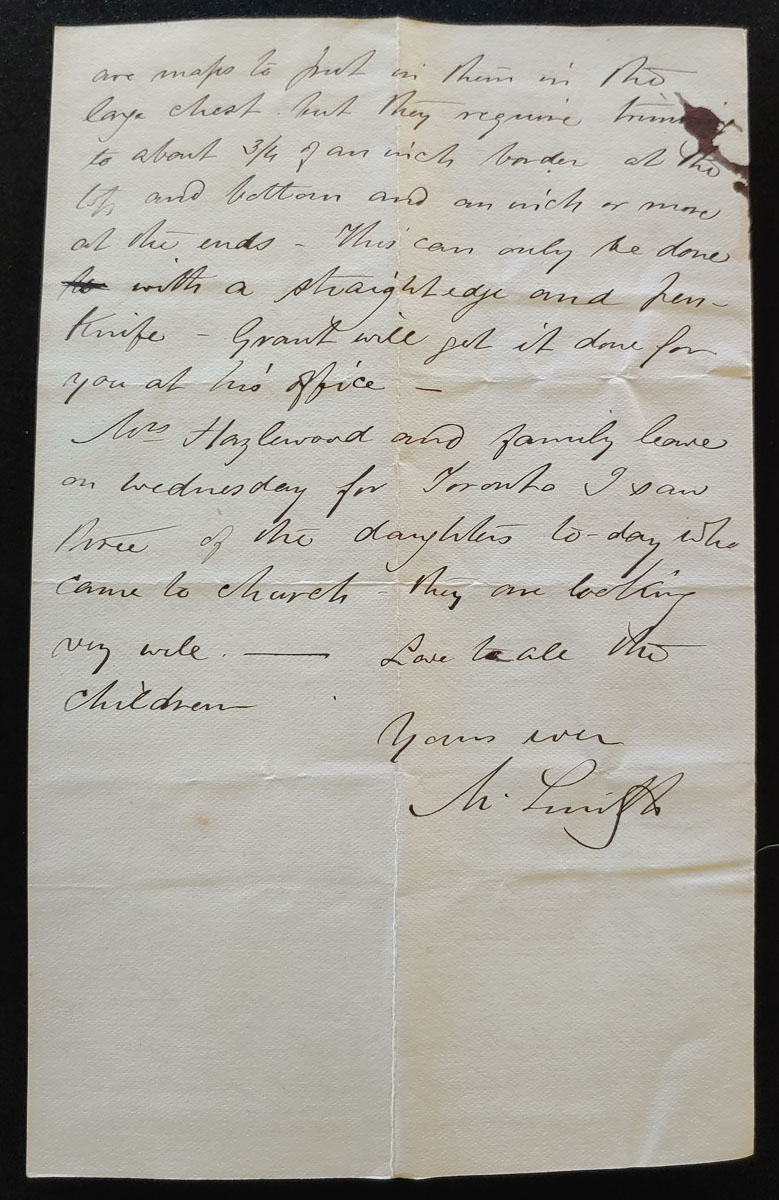 are maps to put in them in the
large chest but they require
to about 3/4 of an inch border at the
top and bottom and an inch or more
at the ends - This can only be done
to with a straight edge and pen-
Knife - Grant will get it done for
you at his office -
Mrs Hazlewood and family leave
on wednesday for Toronto I saw
three of the daughters to-day who
came to church - they are looking
very well. — Love to all the
children
Yours ever
M. Smith